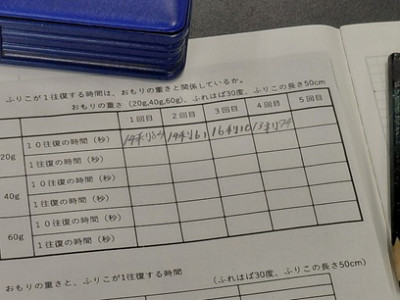 ふりこが１往復する時間は、おもりの重さと関係しているか。
おもりの重さ（20g,40g,60g)、ふれはば30度、ふりこの長さ50cm
１回目 ２回目 ３回目 ４回目 ５回目
20g １０往復の時間（秒）
１往復の時間（秒）
40g １０往復の時間（秒）
１往復の時間（秒）
60g １０往復の時間（秒）
１往復の時間（秒）
おもりの重さと、ふりこが1往復する時間 （ふれはば30度、ふりこの長さ50cm）